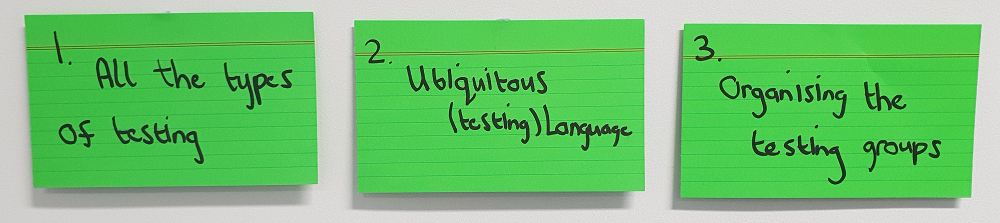 1.
All the types
of testing
2.
Ubiquitous
(testing) Language
3.
Organising the
testing groups